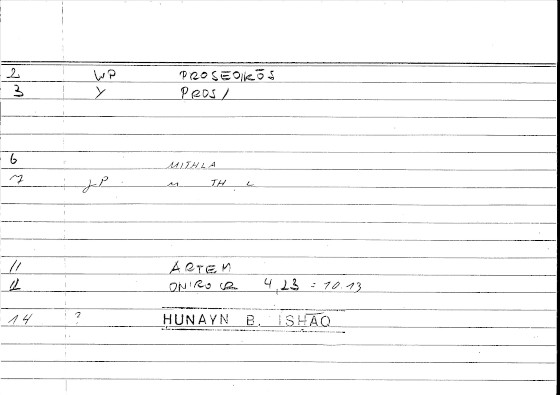 2 WP PROSEOIKŌS
3 Y PROS/
6 MITHLA
7 JP M TH L
11 ARTEM
12 ONIROCR 4,23 = 10.13
14 ? HUNAYN B. ISHĀQ